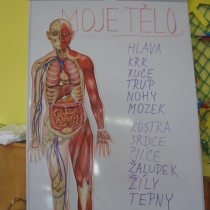 MOJE TĚLO
HLAVA
KRK
RUCE
TRUP
NOHY
MOZEK
KOSTRA
SRDCE
PLÍCE
ŽALUDEK
ŽÍLY
TEPNY